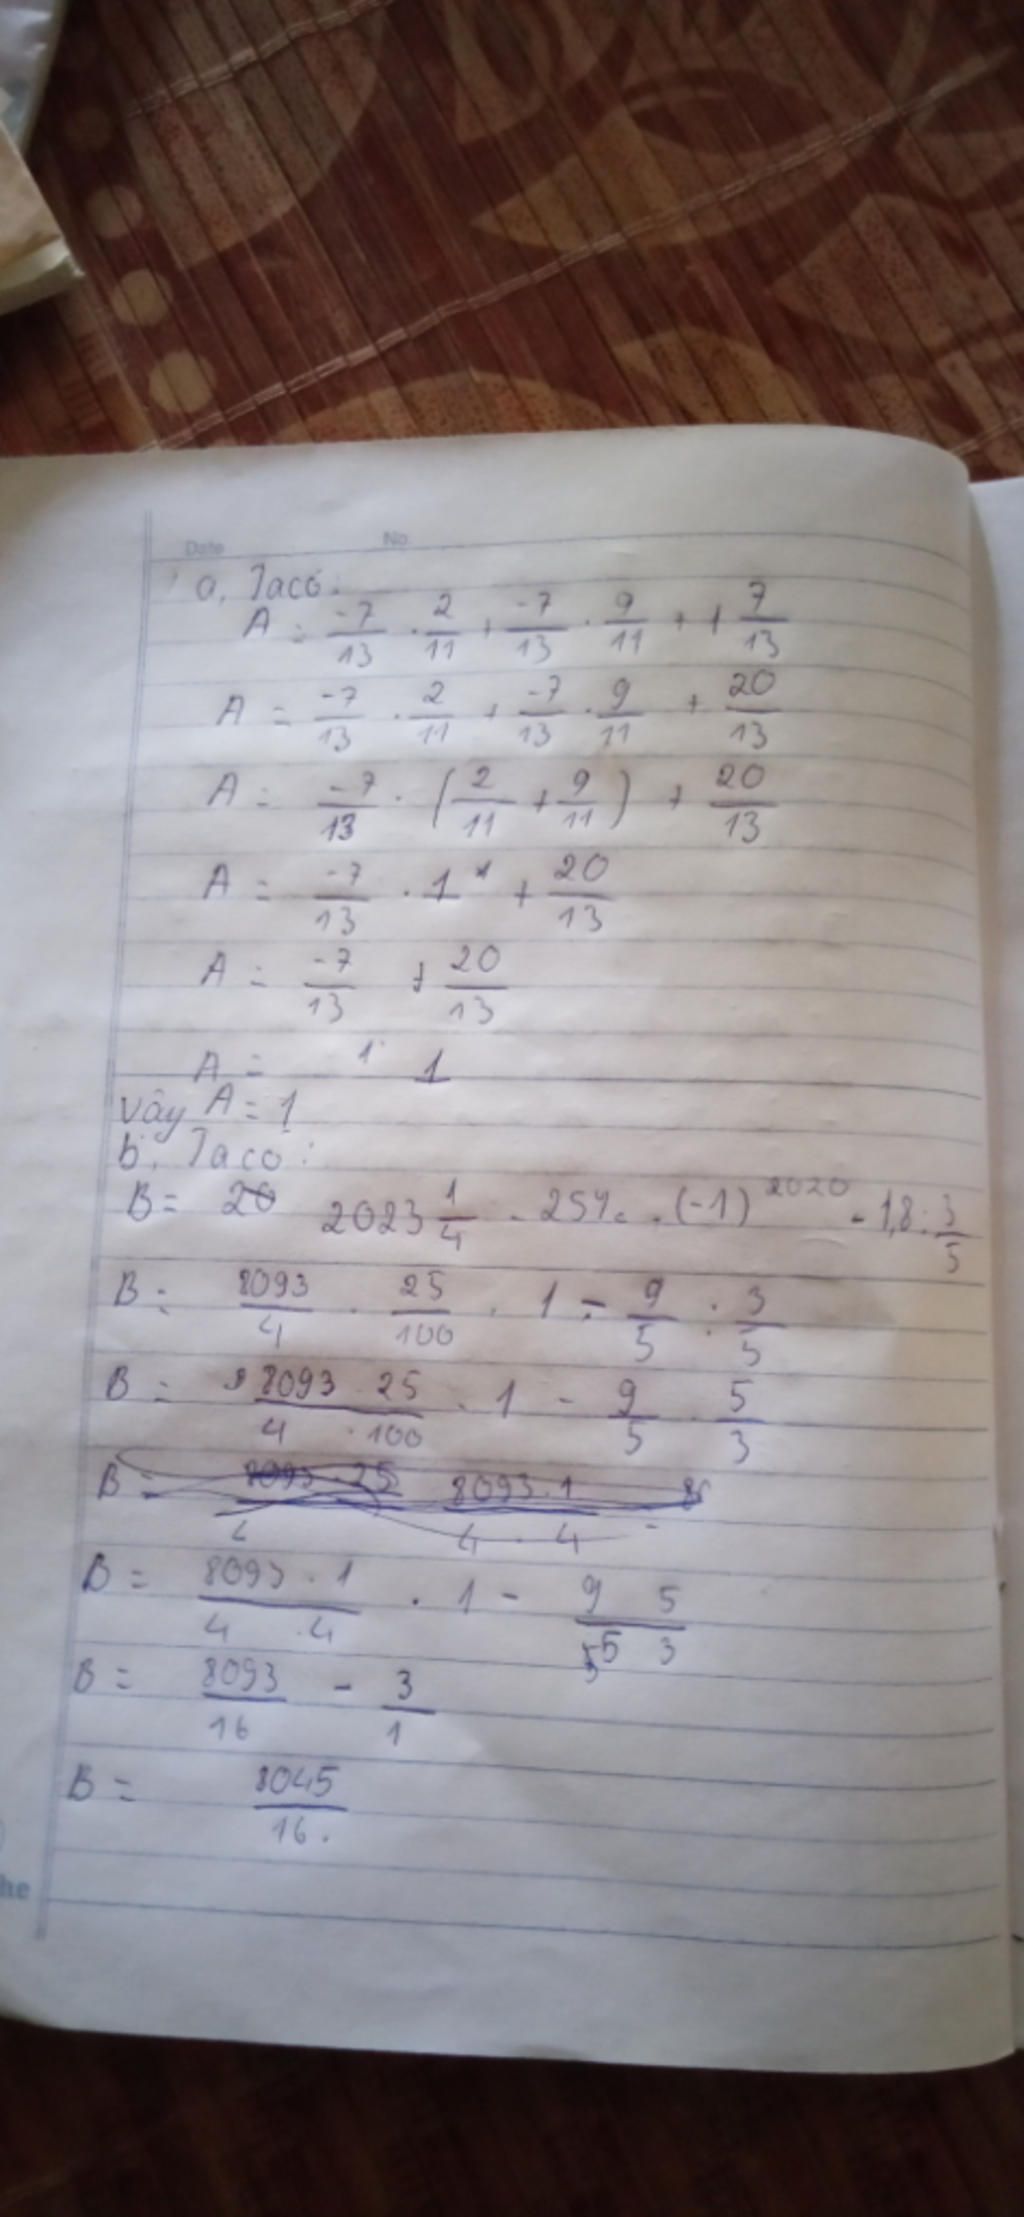 Date No
a, Ta có:
A = -7/13 . 2/11 + -7/13 . 9/11 + 1 7/13
A = -7/13 . 2/11 + -7/13 . 9/11 + 20/13
A = -7/13 . (2/11 + 9/11) + 20/13
A = -7/13 . 1 + 20/13
A = -7/13 + 20/13
A = 1
vậy A = 1
b, Ta có:
B = 20 2023 1/4 . 25% . (-1)^2020 - 1,8 : 3/5
B = 8093/4 . 25/100 . 1 - 9/5 : 3/5
B = 8093 . 25/4 . 100 . 1 - 9/5 . 5/3
B = 8093 . 25/4 8093 . 1/4 . 4 -
B = 8093 . 1/4 . 4 . 1 - 9 5/5 3
B = 8093/16 - 3/1
B = 8045/16.
he